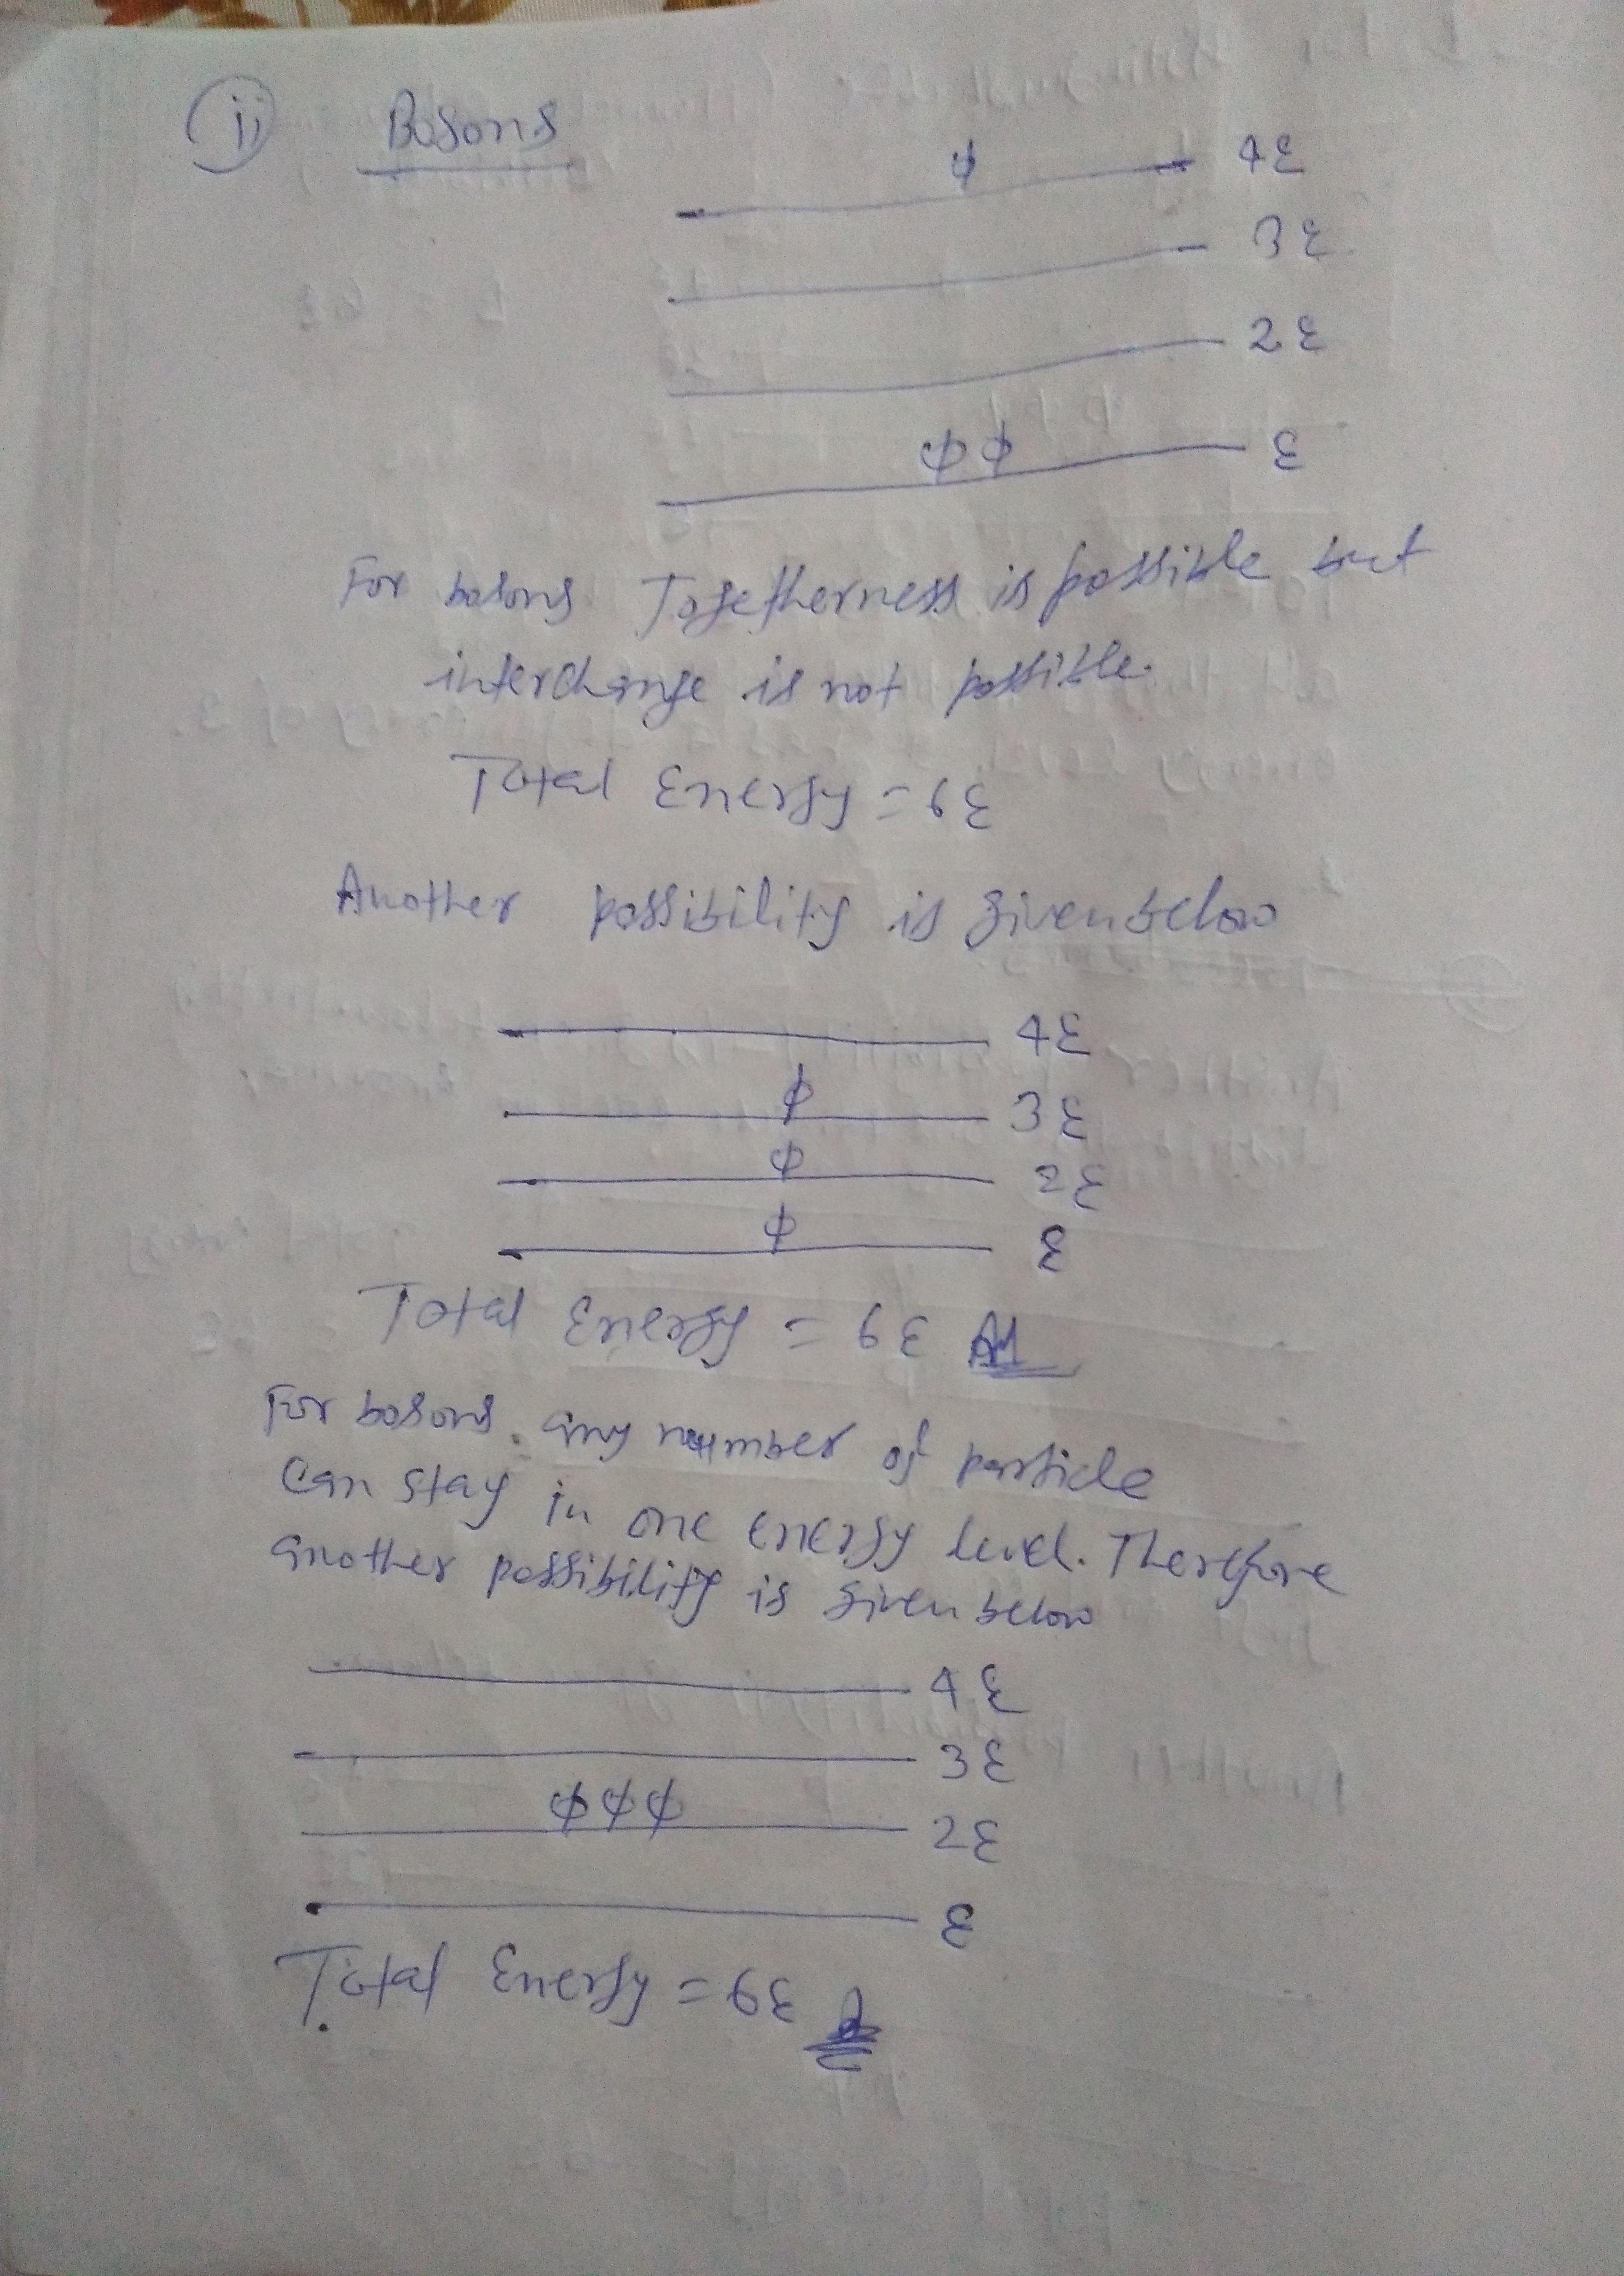 ii Bosons
4ε
3ε
2ε
ε
For bosons Togetherness is possible but
interchange is not possible.
Total Energy = 6ε
Another possibility is given below
4ε
3ε
2ε
ε
Total Energy = 6ε
For bosons any number of particle
can stay in one energy level. Therefore
another possibility is given below
4ε
3ε
2ε
ε
Total Energy = 6ε